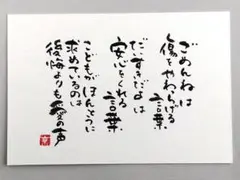 ごめんね は
傷をやわらげる
言葉
だいすきだよ は
安心をくれる
言葉
こどもが ほんとうに
求めているのは
後悔よりも 愛の声